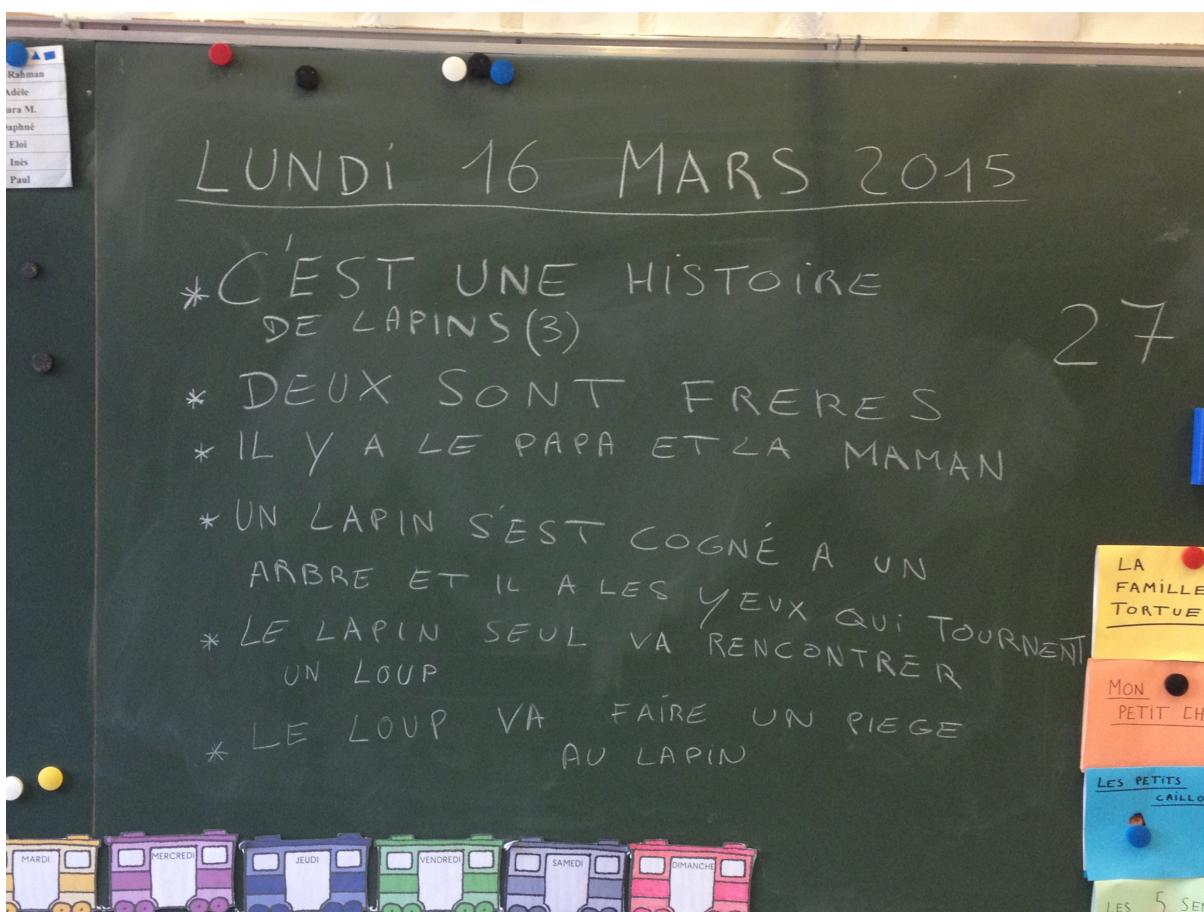 Rahman
Adèle
ara M.
Daphné
Eloi
Inès
Paul
LUNDi 16 MARS 2015
* C'EST UNE HiSTOiRE
DE LAPINS (3)
27
* DEUX SONT FRERES
* IL Y A LE PAPA ET LA MAMAN
* UN LAPIN S'EST COGNÉ A UN
ARBRE ET IL A LES YEUX QUi TOURNENT
* LE LAPIN SEUL VA RENCONTRER
UN LOUP
* LE LOUP VA FAIRE UN PIEGE
AU LAPIN
LA
FAMiLLE
TORTUE
MON
PETIT CH
LES PETITS
CAiLLO
LES 5 SE
MARDI
MERCREDI
JEUDI
VENDREDI
SAMEDI
DIMANCHE